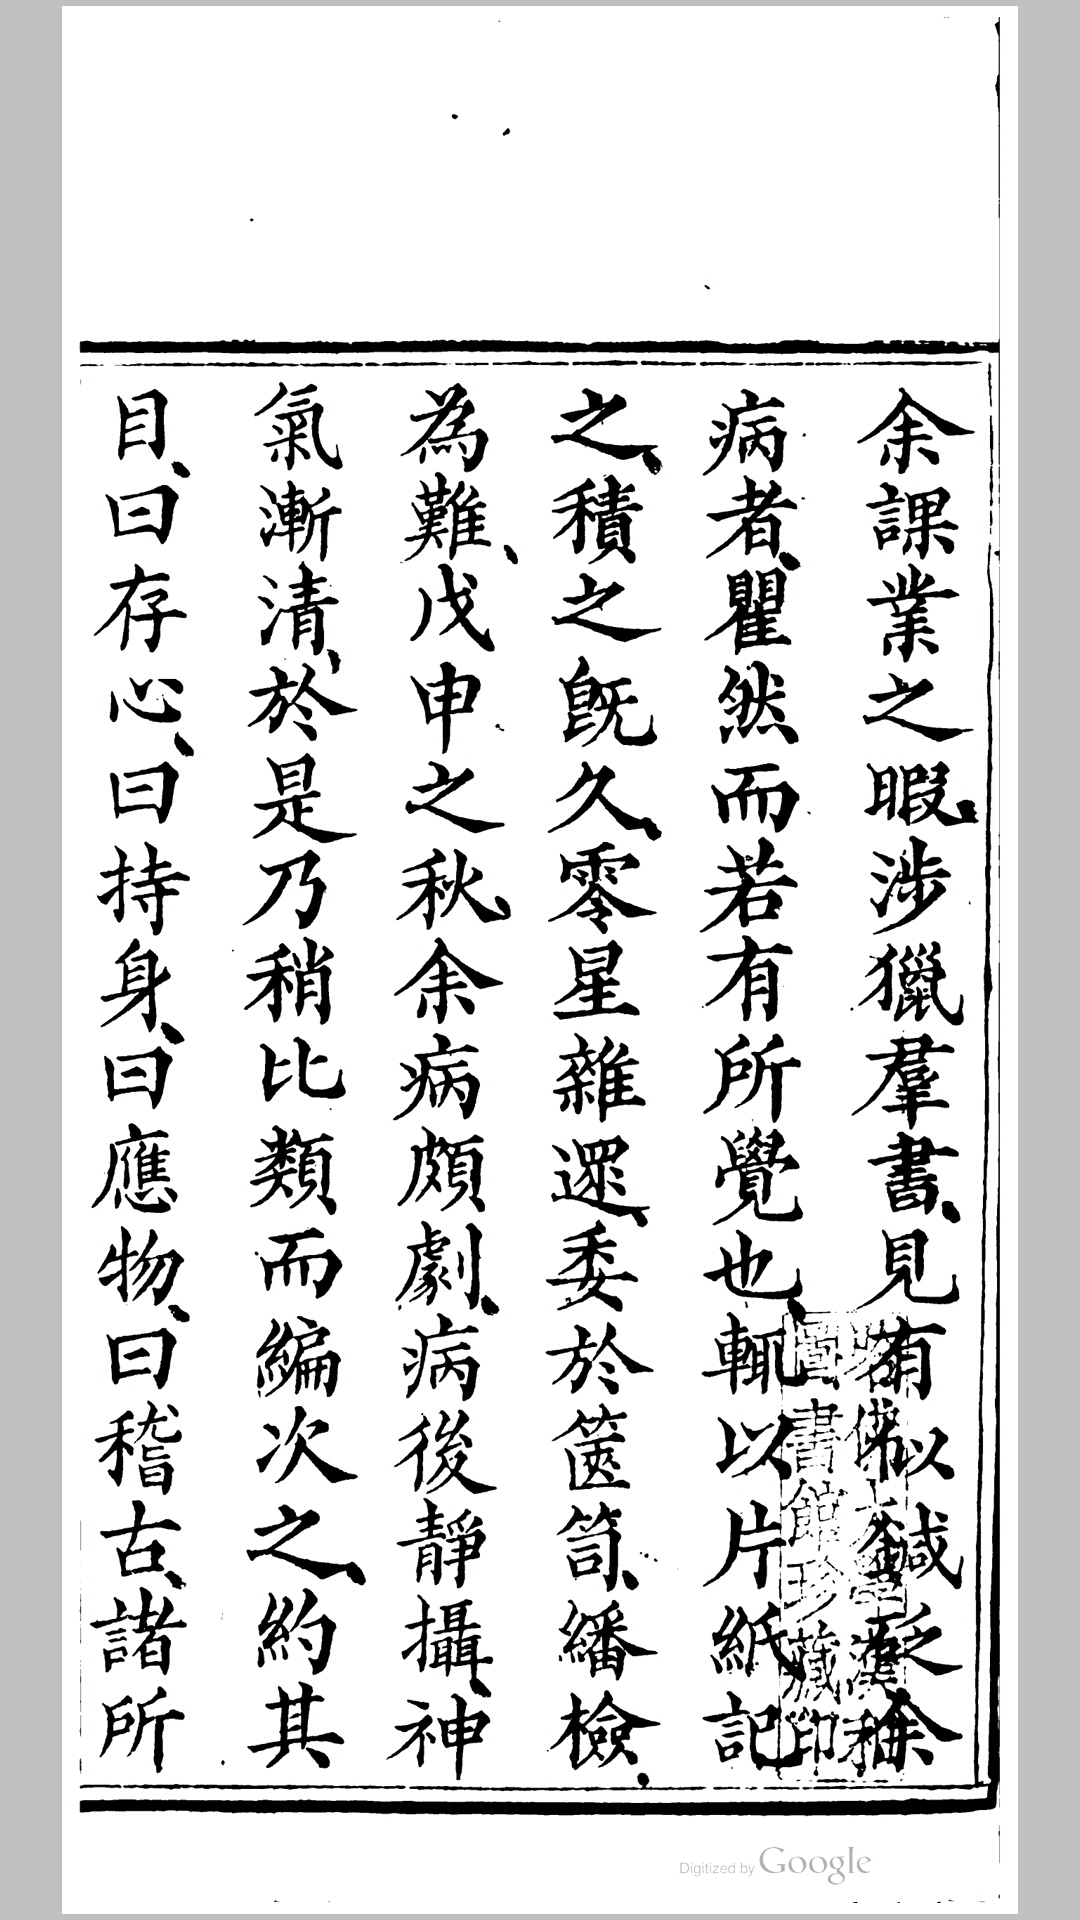 余課業之暇、涉獵羣書、見有以鍼砭余
病者、瞿然而若有所覺也、輒以片紙記
之、積之既久、零星雜遝、委於篋笥、繙檢
為難、戊申之秋、余病頗劇、病後靜攝、神
氣漸清、於是乃稍比類而編次之、約其
目、曰存心、曰持身、曰應物、曰稽古、諸所
圖書館珍藏印
Digitized by Google